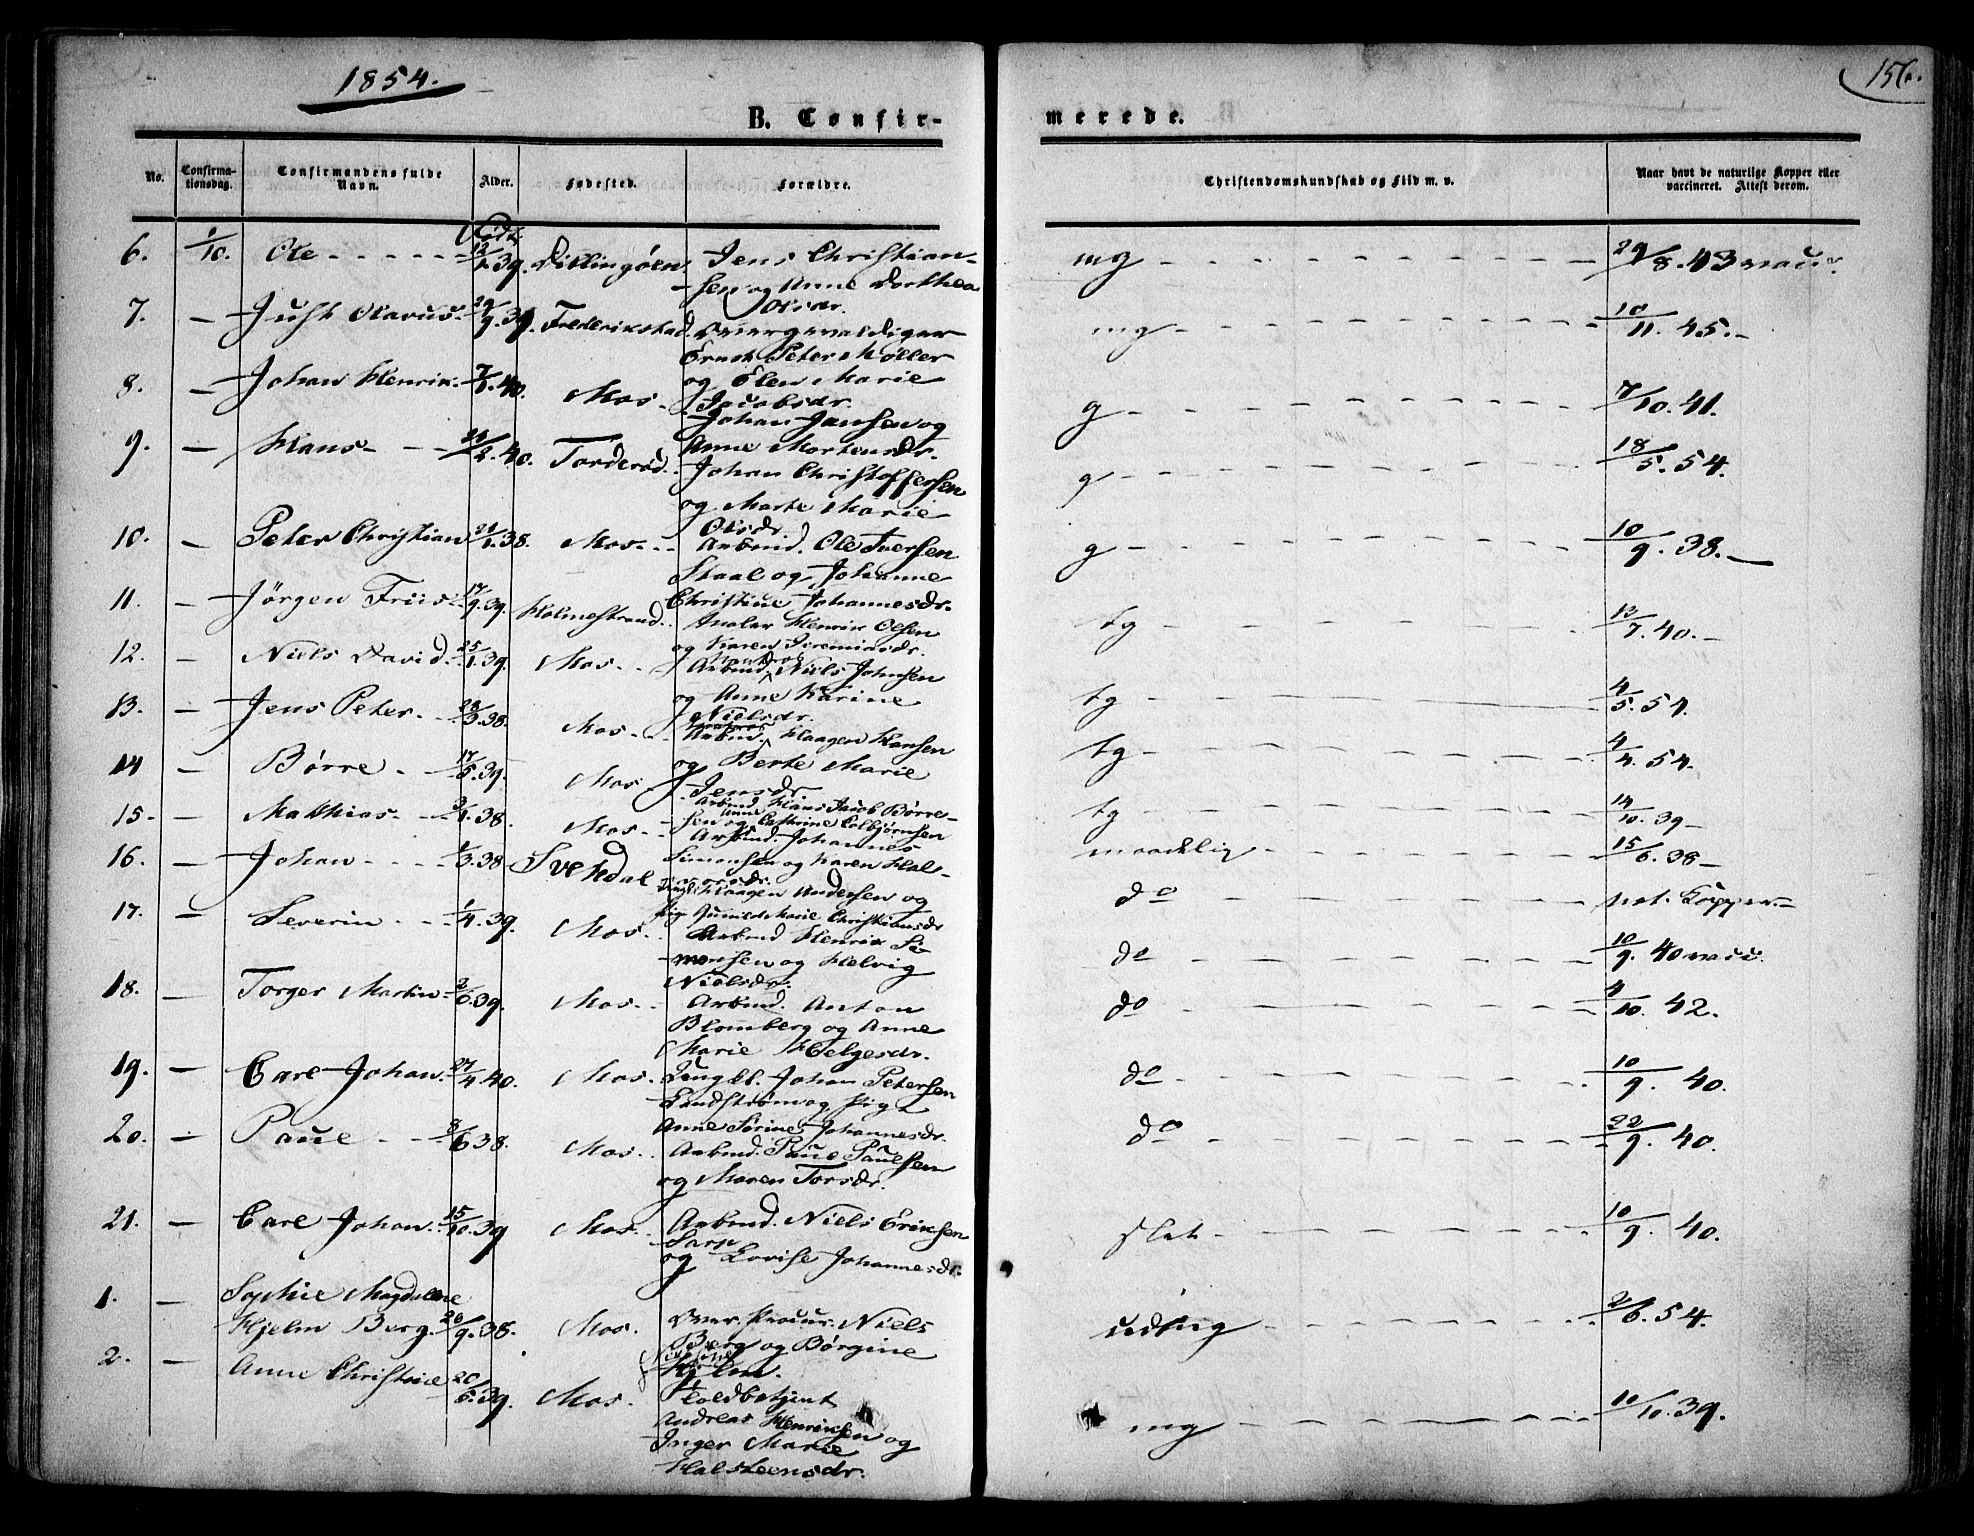 1854.
156.
B. Confir-
merede.
No.
Confirma-
tionsdag.
Confirmandens fulde
Navn.
Alder.
Fødested.
Forældre.
Christendomskundskab og Flid m. v.
Naar havt de naturlige Kopper eller
vaccineret. Attest derom.
6. 1/10. Ole - - - - - 39. Jens Christian-
sen og Anne Dorthea
Olsdr.
mg - - - - 29/8. 43
7. - Just Olavus. 29/9. 39. Frederikstad.
Ernst Peter Møller
og Elen Marie
Jacobsdr.
mg - - - - 10/11. 45. -
8. - Johan Henrik. 40. Mos. Johan Jansen og
Anne Mortensdr.
g - - - - 7/10. 41.
9. - Hans - - - 2. 40. Torderød. Johan Christoffersen
og Marte Marie
Olsdr.
g - - - - 18/5. 54.
10. - Peter Christian 38. Mos. Arbmd. Ole Iversen
Staal og Johanne
Christine Johannesdr.
g - - - - 10/9. 38. -
11. - Jørgen Friis. 17/9. 39. Holmestrand. Henrik Olsen
og Karen Jeremiasdr.
tg - - - - 13/7. 40. -
12. - Niels David. 25/1. 39. Mos. Arbmd. Niels Johnsen
og Anne Karine
Nielsdr.
tg - - - - 4/5. 54.
13. - Jens Peter. 28/3. 38. Mos. Arbmd. Haagen Hansen
og Berte Marie
Jensdr.
tg - - - - 4/4. 54.
14 - Børre - 17/5. 39. Mos. Arbmd. Hans Jacob Børre-
sen og Anne Cathrine Colbjørnsen
tg - - - - 14/10. 39 -
15. - Mathias - 38. Mos. Arbmd. Johannes
Simonsen og Karen Hal-
vorsdr.
maadelig - - - - 15/6. 38 -
16. - Johan - - - 3. 38 Svendal Haagen Andersen og
Pige Gunild Marie Christiansdr
do - - - - nat. Kopper. -
17. - Severin - - 1/4. 39. Mos. Arbmd Henrik Si-
monsen og Helvig
Nielsdr.
do - - - - 10/9. 40 vacc.
18. - Torger Martin 6. 39. Mos. Arbmd. Anton
Blomberg og Anne
Marie Helgesdr.
do - - - - 4/10. 42.
19. - Carl Johan. 27/4. 40. Mos. Ungkl. Johan Petersen
Lindstrøm og Pige
Anne Sørine Johannesdr.
do - - - - 10/9. 40.
20. - Paul - - 8/6 38. Mos. Arbmd. Paul Paulsen
og Maren Torsdr.
do - - - - 22/9. 40.
21. - Carl Johan. 15/10. 39 Mos. Arbmd. Niels Eriksen
Sarp
og Lovise Johannesdr.
slet - - - - 10/9. 40.
1. - Sophie Magdalene
Hjelm Berg. 20/9. 38. Mos. Over. Procur. Niels
Berg og Børgine
Hjelm.
udmg - - - - 2/6. 54.
2. - Anne Christine 20/6. 39. Mos. Toldbetjent
Andreas Henriksen og
Inger Marie
Halsteensdr.
mg - - - - 10/10. 39.